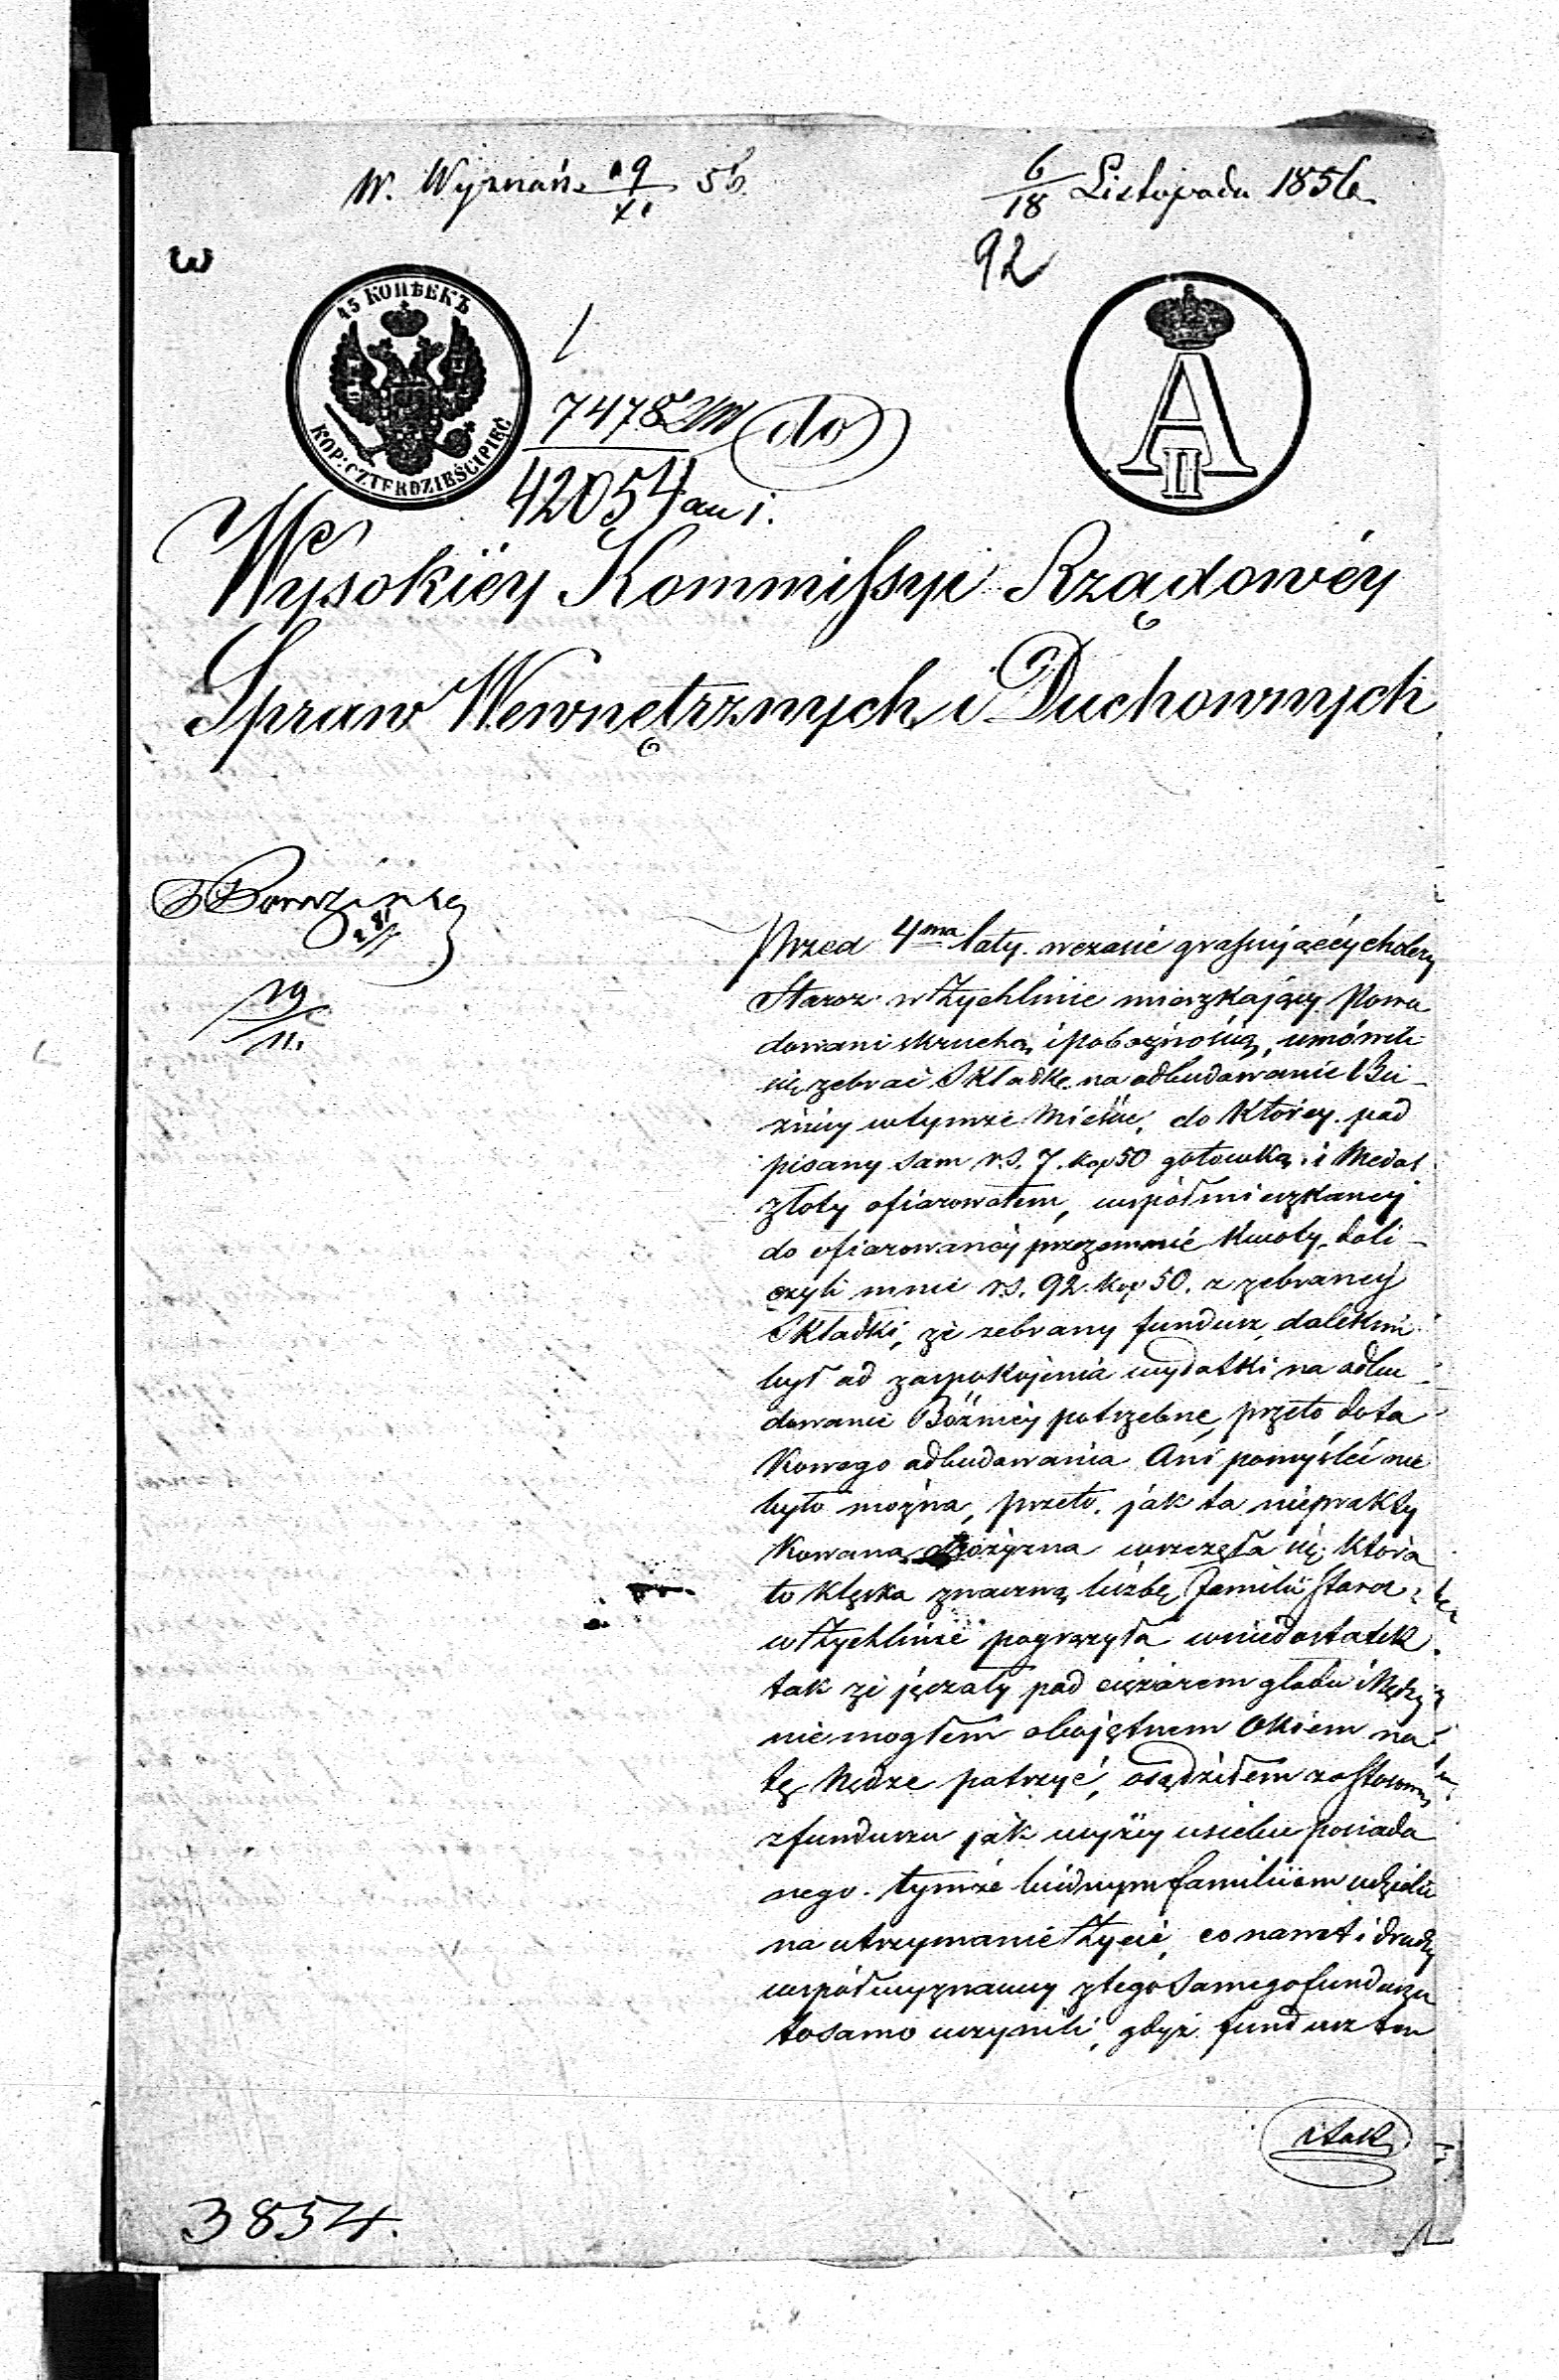 W. Wyznań 19/XI 56.
6/18 Listopada 1856
92
45 КОПѢЕКЪ
KOP: CZTERDZIEŚCI PIĘĆ
A II
7478
42054
do
Wysokiéy Kommissyi Rządowéy
Spraw Wewnętrznych i Duchownych
19/11
Przed 4ma laty. wczasie grassującéy cholery
Staroz. w Żychlinie mieszkający. Powo
dowani skruchą i pobożnością, umówili
się zebrać Składkę na odbudowanie Bu
żnicy wtymże Mieście, do Któréy. pod
pisany sam r.s. 7. kop 50 gotowką. i Medal
złoty ofiarowałem, współmieszkancy
do ofiarowanéy przezemnie Kwoty, doli
czyli mnie r.s. 92. kop 50. z zebranéy
Składki, że zebrany fundusz, dalekim
był od zaspokojenia wydatki na odbu
dowanie Bóżnicy potrzebne, przeto do ta
Kowego odbudowania Ani pomyśleć nie
było można, przeto. jak ta nieprakty
Kowana drożyzna wszczęła się. Która
to klęska znaczną liczbę Familii Staroz.
w Żychlinie pogrążyła w niedostatek.
tak że jęczały pod ciężarem głodu i Nędzy
nie mogłem obojętnem Okiem na
tę Nędze patrzyć, osądziłem za stosowne
z funduszu jak wyżéy u siebie posiada
nego. tymże biednym familiiom udzielić
na utrzymanie Życie, co nawet i drudzy
współwyznawcy z tego samego funduszu
to samo uczynili, gdyż fundusz ten
i tak
3854.